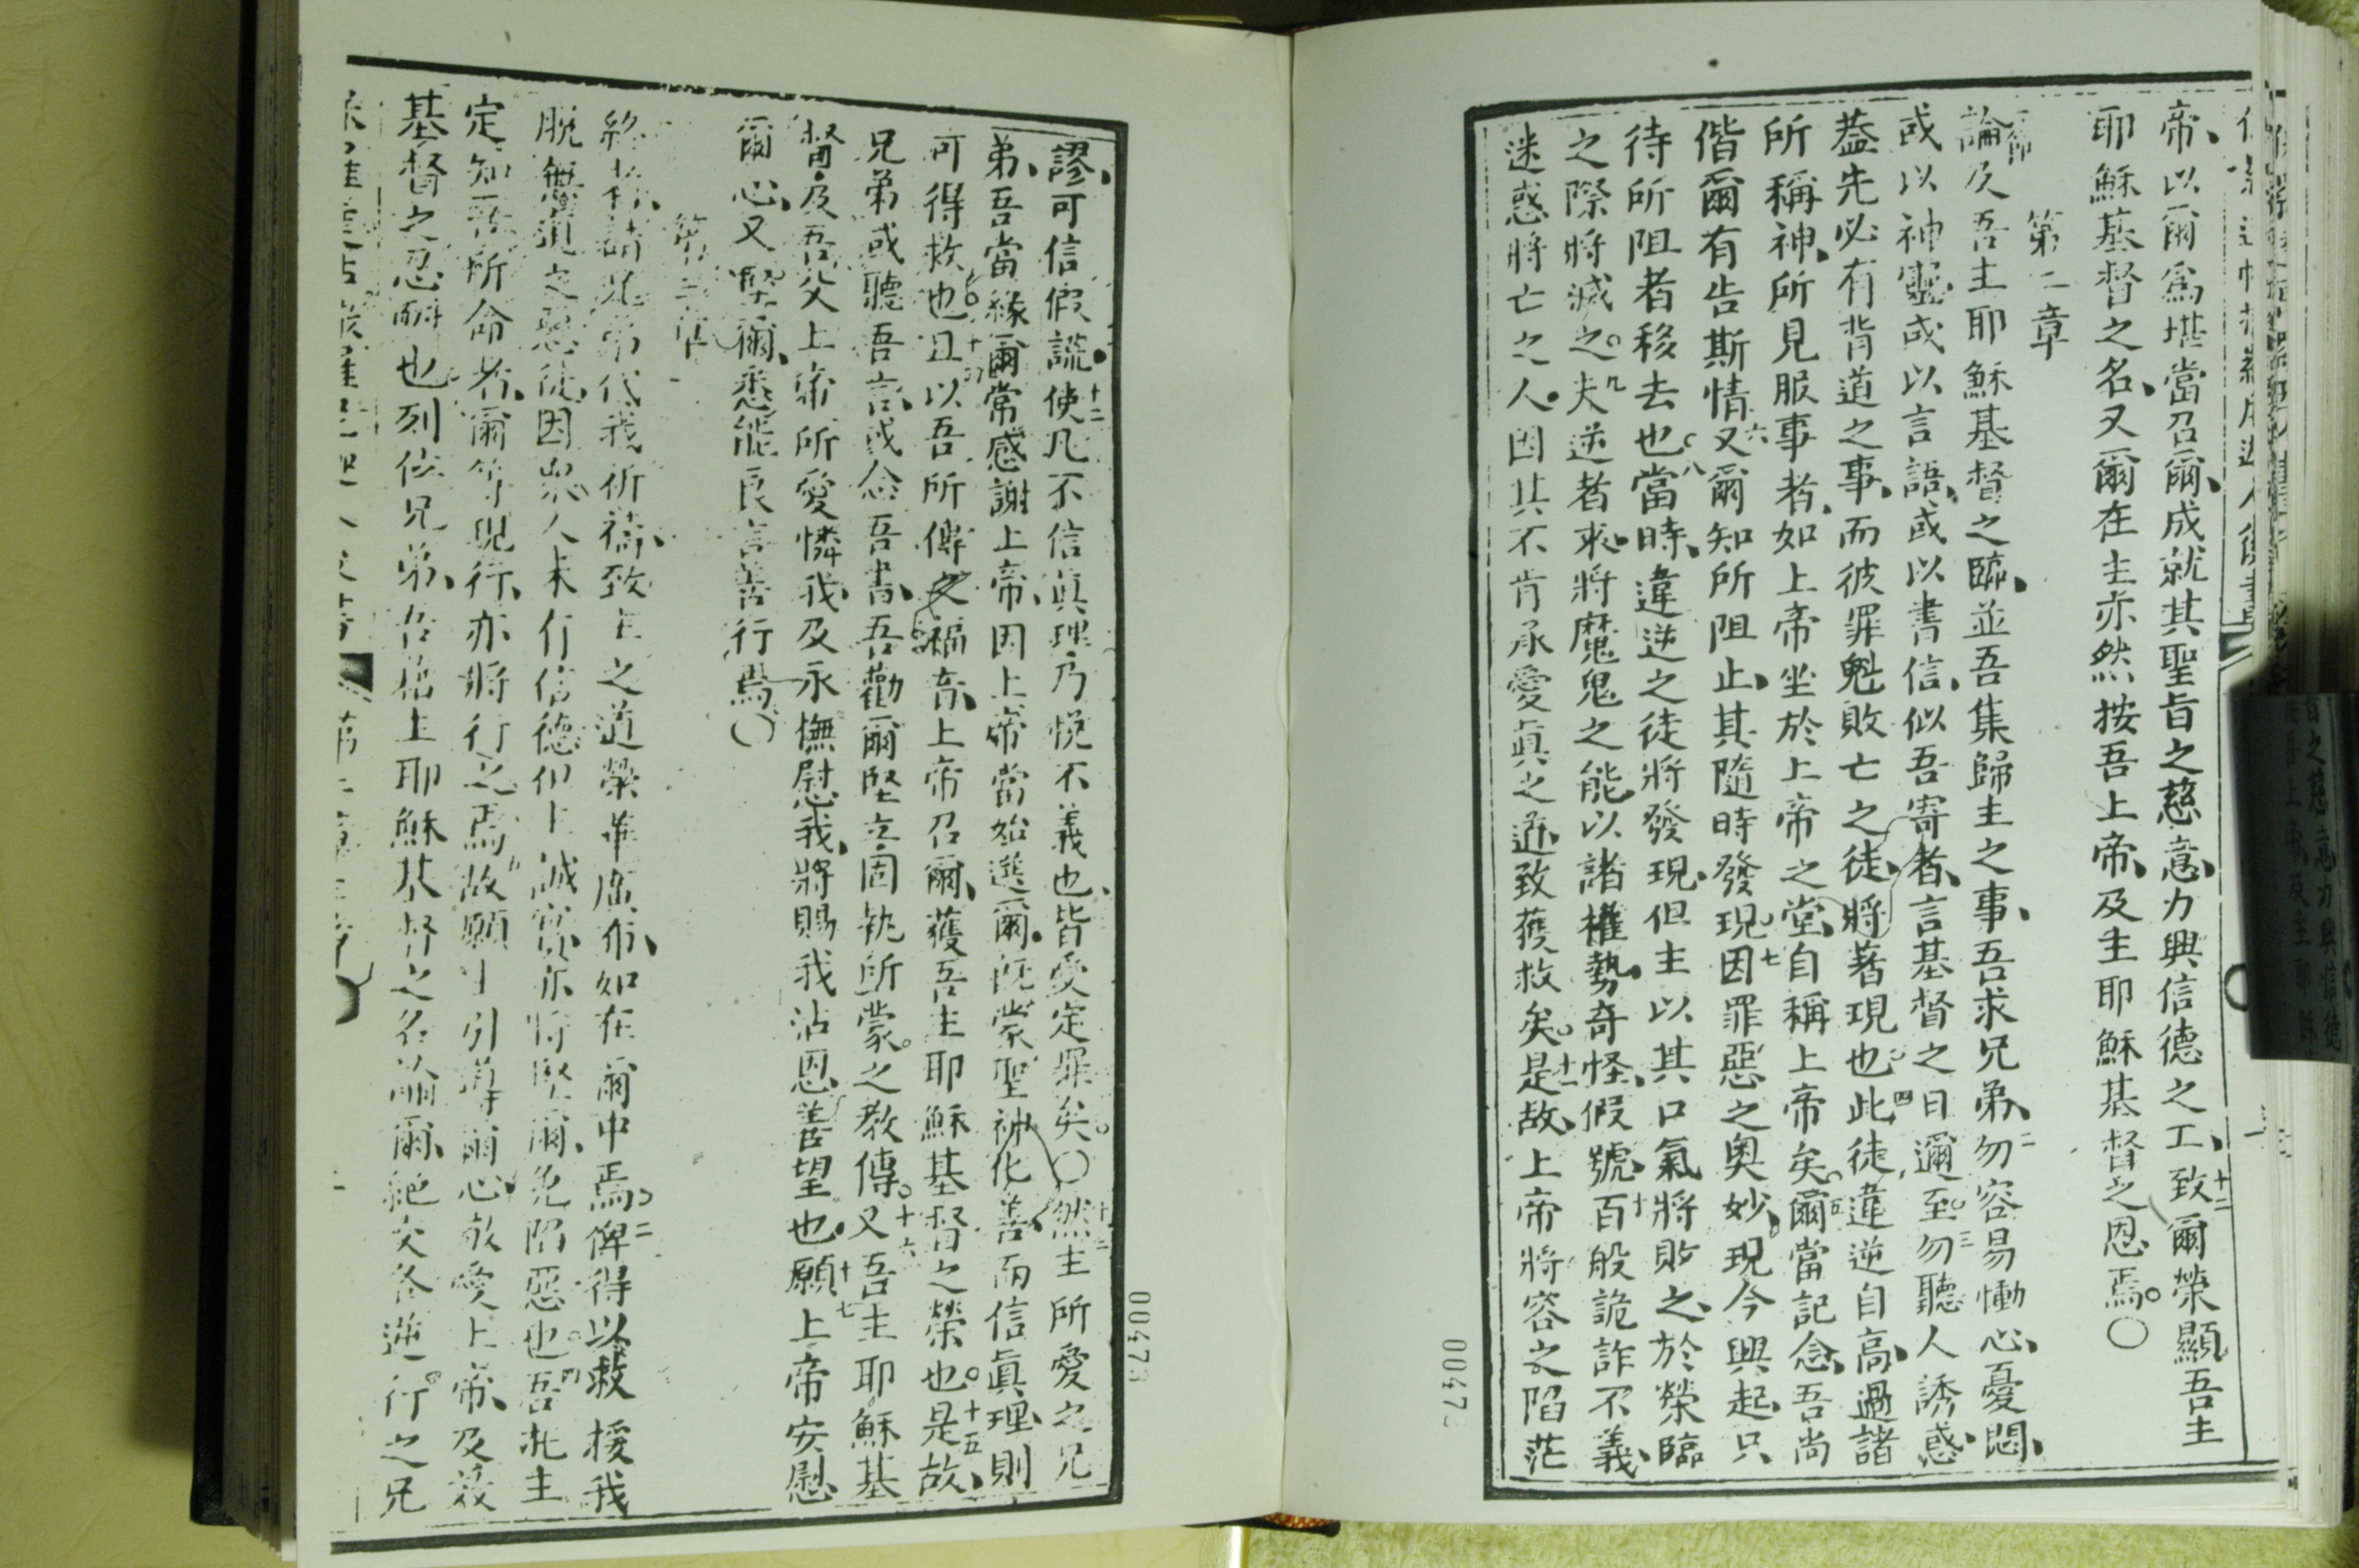 帝、以爾爲堪當召爾、成就其聖旨之慈意、力興信德之工、致十二爾榮顯吾主
耶穌基督之名、又爾在主亦然、按吾上帝、及主耶穌基督之恩焉。〇
第二章
論及吾主耶穌基督之臨、並吾集歸主之事、吾求兄弟、二勿容易慟心、憂悶、
或以神靈、或以言語、或以書信、似吾寄者、言基督之日邇至。三勿聽人誘惑、
葢先必有背道之事、而彼罪魁敗亡之徒、將著現也。四此徒、違逆自高、過諸
所稱神、所見服事者、如上帝坐於上帝之堂、自稱上帝矣。五爾當記念、吾尚
偕爾有告斯情。六又爾知所阻止、其隨時發現。七因罪惡之奧妙、現今興起、只
待所阻者移去也。八當時、違逆之徒將發現、但主以其口氣將敗之、於榮臨
之際將滅之。九夫逆者來、將魔鬼之能、以諸權勢、奇怪、假號、十百般詭詐不義、
迷惑將亡之人、因其不肯承愛眞之逓、致獲救矣。十一是故、上帝將容之陷茫
謬、可信假謊、十二使凡不信眞理、乃悅不義也、皆受定罪矣。〇十三然主所愛之兄
弟、吾當緣爾常感謝上帝、因上帝當始選爾、旣蒙聖神化善、而信眞理、則
可得救也。十四且以吾所傳之福音、上帝召爾、獲吾主耶穌基督之榮也。十五是故、
兄弟或聽吾言、或念吾書、吾勸爾堅立、固執所蒙之教傳。十六又吾主耶穌基
督、及吾父上帝所愛憐我、及永撫慰我、將賜我沾恩善望也、十七願上帝安慰
爾心、又堅爾、悉能良言善行焉。〇
第三章
終者、請兄弟代我祈禱、致主之道榮華廣布、如在爾中焉。二俾得以救援我
脫無道之惡徒、因衆人未有信德。但上誠實、亦將堅爾、免陷惡也。四吾託主
定知吾所命者、爾等現行、亦將行之焉。故願主引導爾心、敬愛上帝、及效
基督之忍耐也。列位兄弟、吾主耶穌基督之名諭爾、絕交各逆行之兄